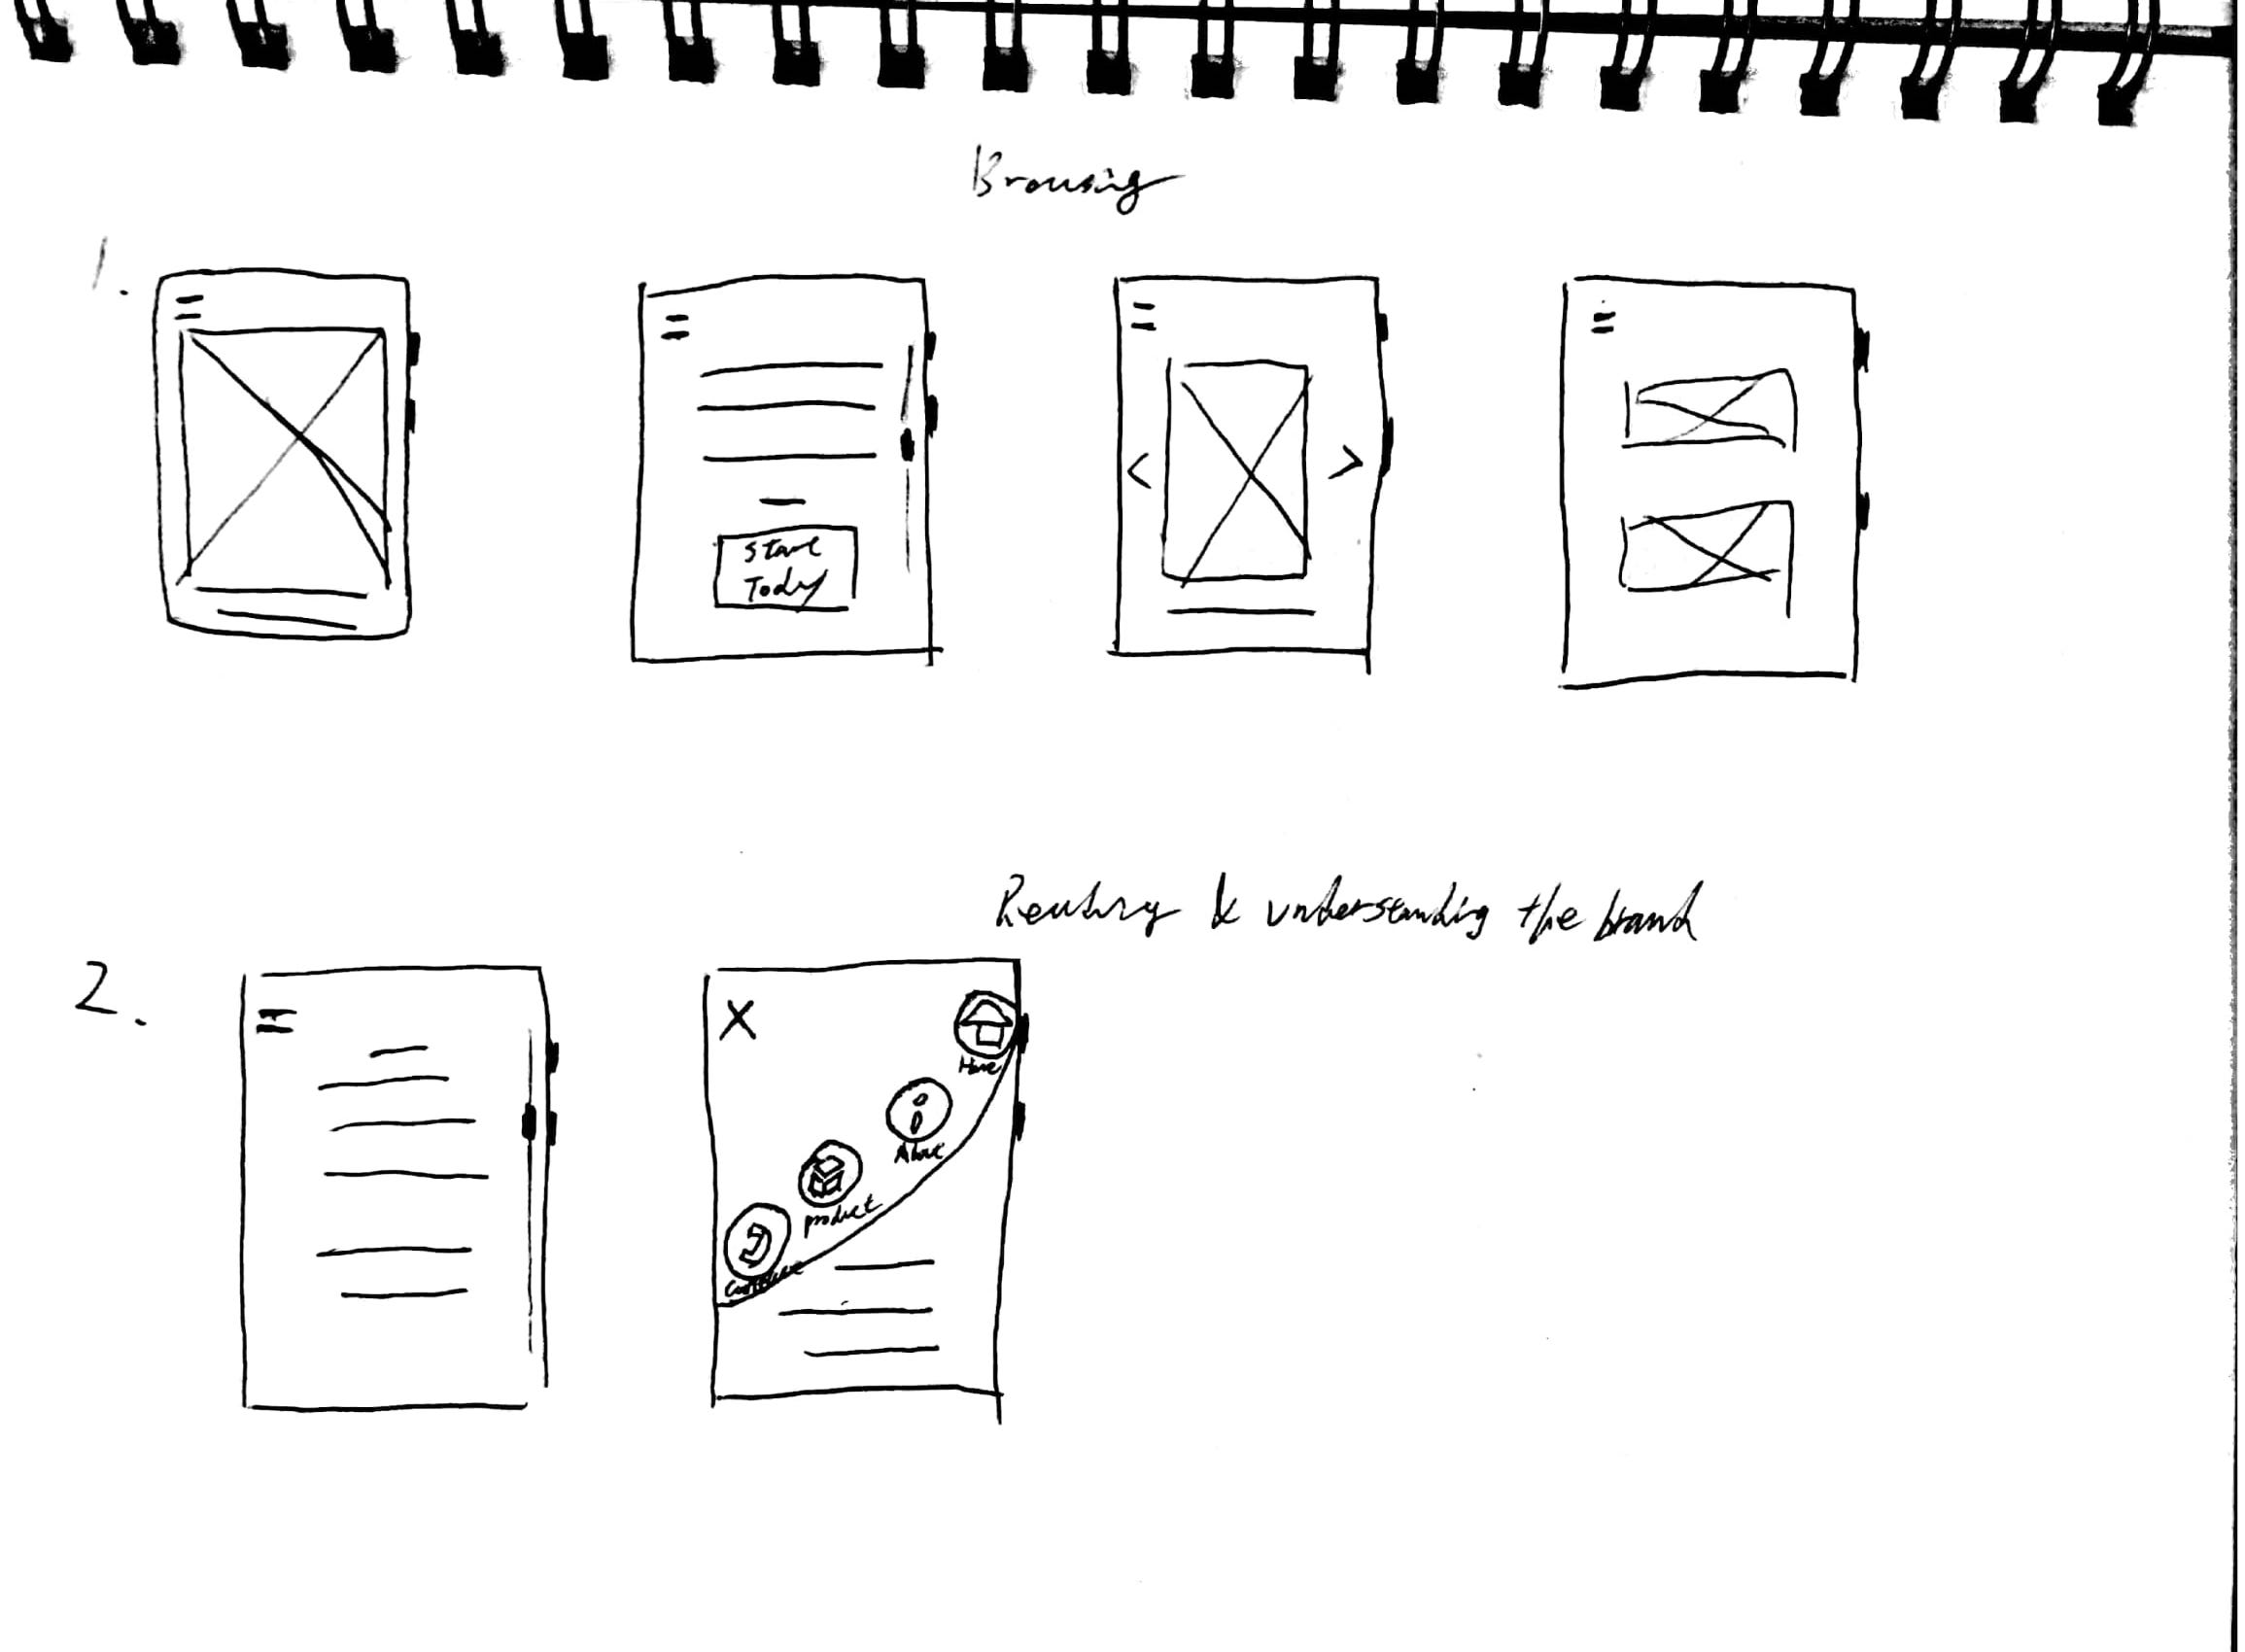 Browsing
1.
Start
Today
Reading & understanding the brand
2.
X
Home
About
product